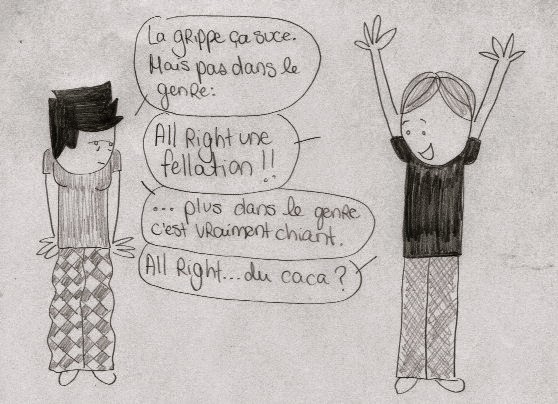 La grippe ça suce.
Mais pas dans le
genre:
All Right une
fellation !!
... plus dans le genre
c'est vraiment chiant.
All Right... du caca ?